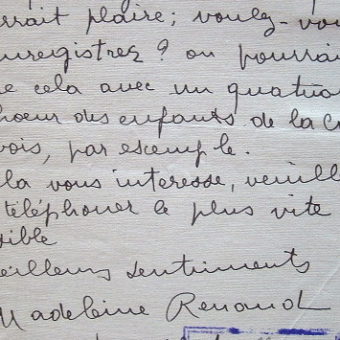 rrait plaire ; voulez-vou
nregistrez ? on pourrai
e cela avec un quatuo
hoeur des enfants de la C
vois, par exemple.
la vous interesse, veuill
téléphoner le plus vite
sible
eilleurs sentiments
Madeleine Renaud